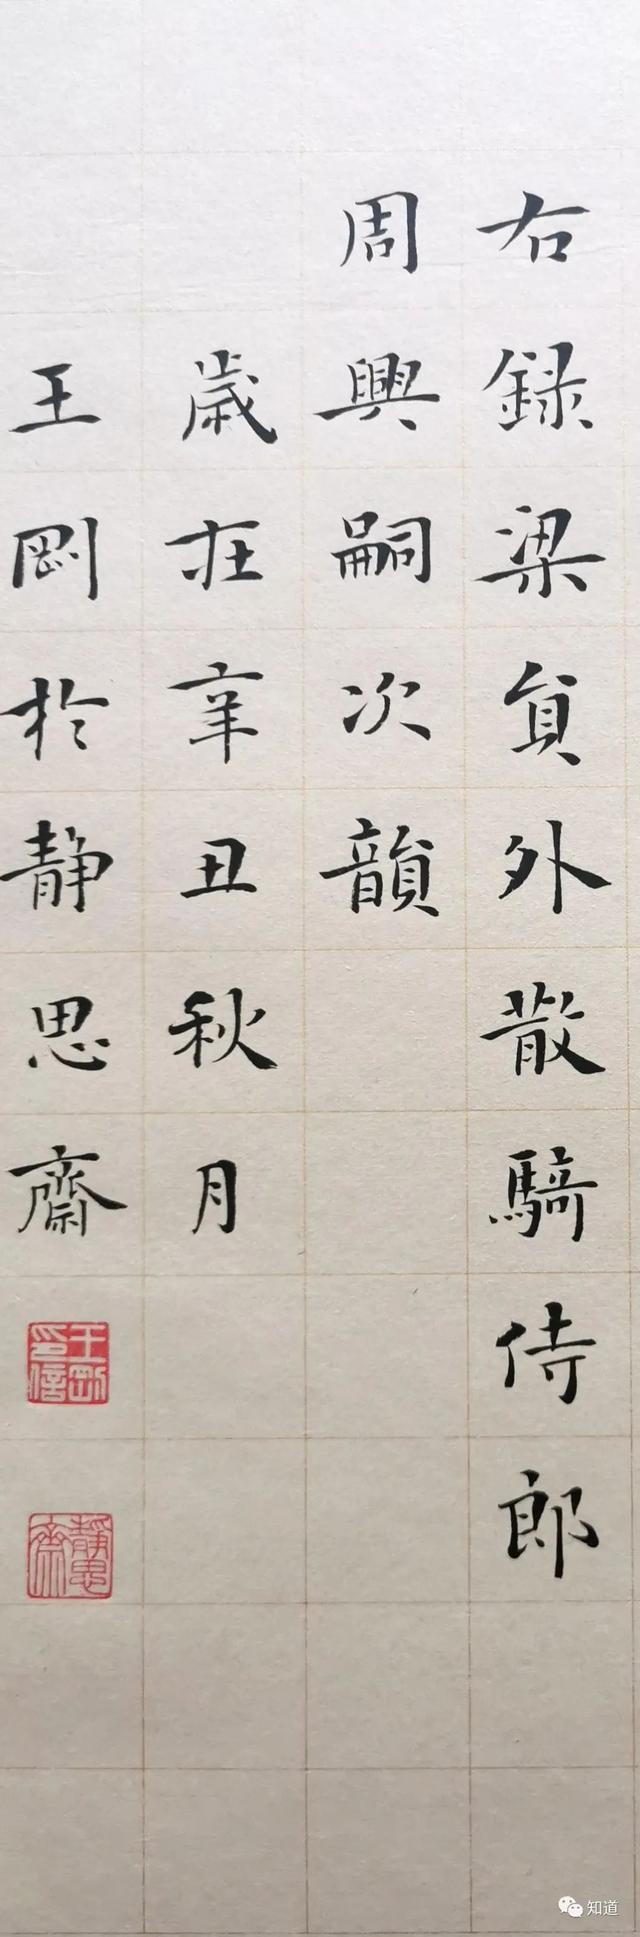 右錄梁貟外散騎侍郎
周興嗣次韻
歲在辛丑秋月
王剛於靜思齋
王剛印信
靜思齋
知道